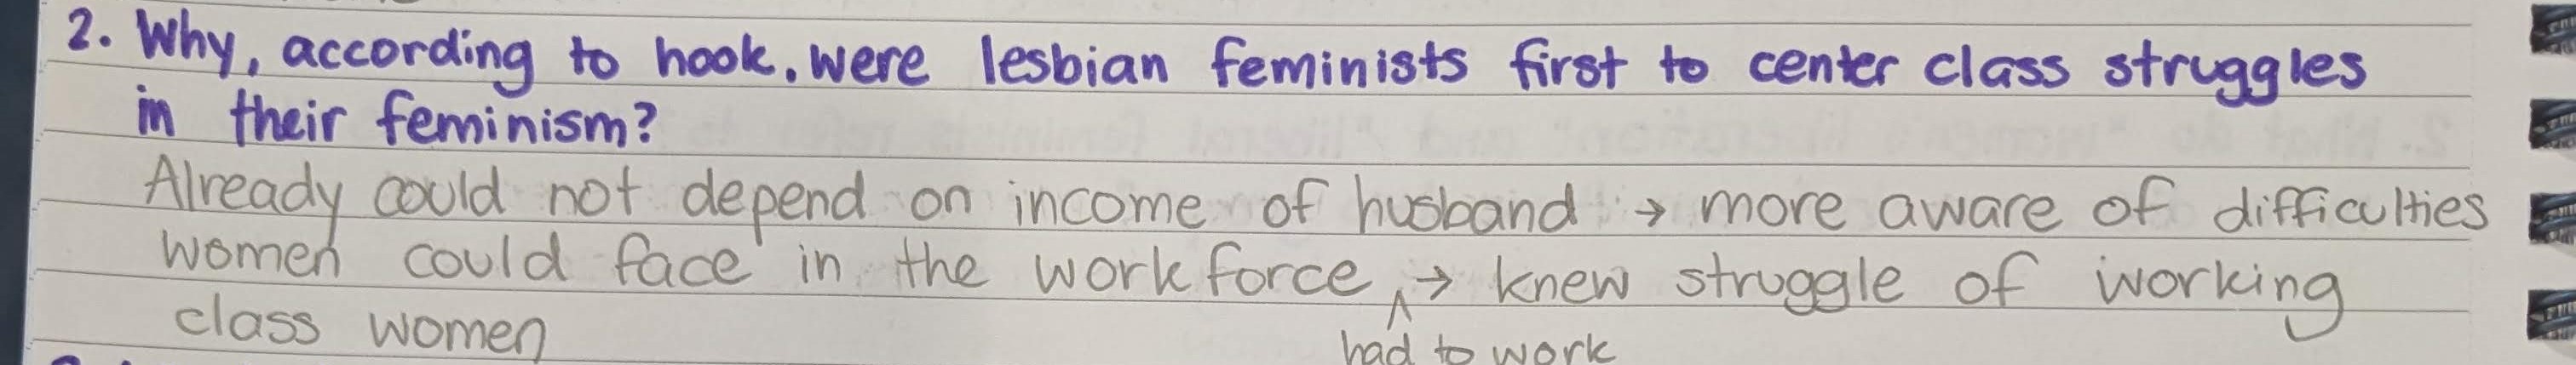 2. Why, according to hook, were lesbian feminists first to center class struggles
in their feminism?
Already could not depend on income of husband → more aware of difficulties
women could face in the workforce, → knew struggle of working
class women
had to work